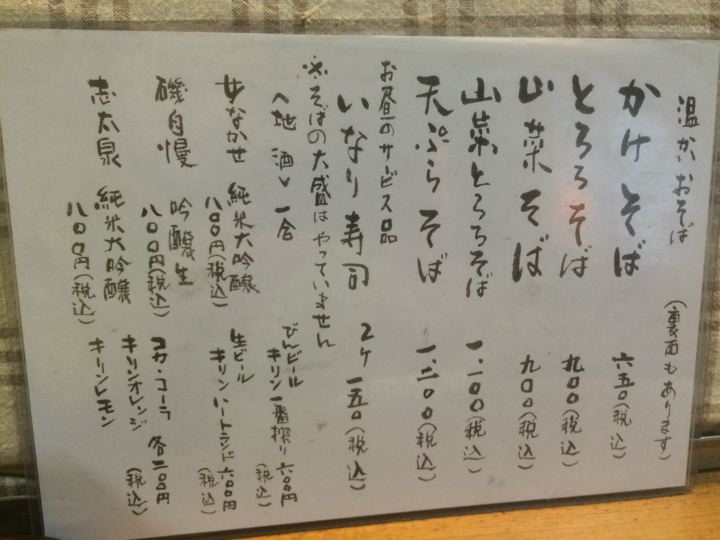 温かいおそば (裏面もあります)
かけそば 六五〇(税込)
とろろそば 九〇〇(税込)
山菜そば 九〇〇(税込)
山菜とろろそば 一、一〇〇(税込)
天ぷらそば 一、二〇〇(税込)
お昼のサービス品
いなり寿司 2ヶ 一五〇(税込)
※そばの大盛はやっていません
〈地酒〉一合
女なかせ 純米大吟醸
八〇〇円(税込)
磯自慢 吟醸生
八〇〇円(税込)
志太泉 純米大吟醸
八〇〇円(税込)
びんビール
キリン一番搾り 六〇〇円
(税込)
生ビール
キリンハートランド 六〇〇円
(税込)
コカ・コーラ 各二〇〇円
キリンオレンジ (税込)
キリンレモン